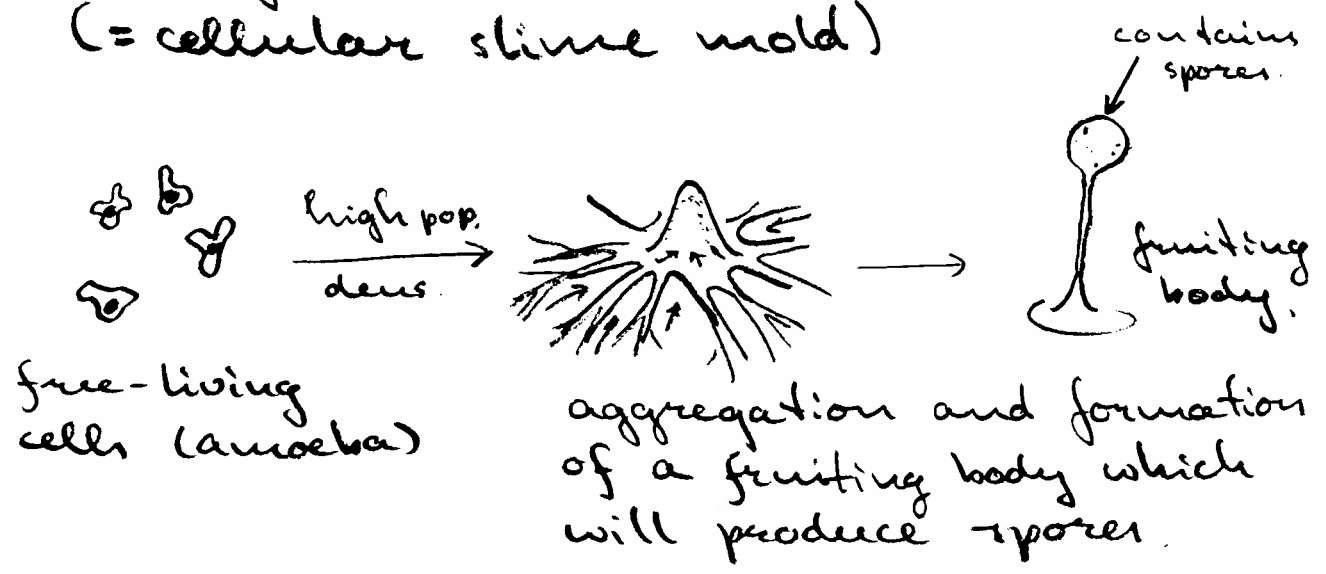 (= cellular slime mold)
contains
spores.
high pop.
dens.
fruiting
body.
free-living
cells (amoeba)
aggregation and formation
of a fruiting body which
will produce spores.